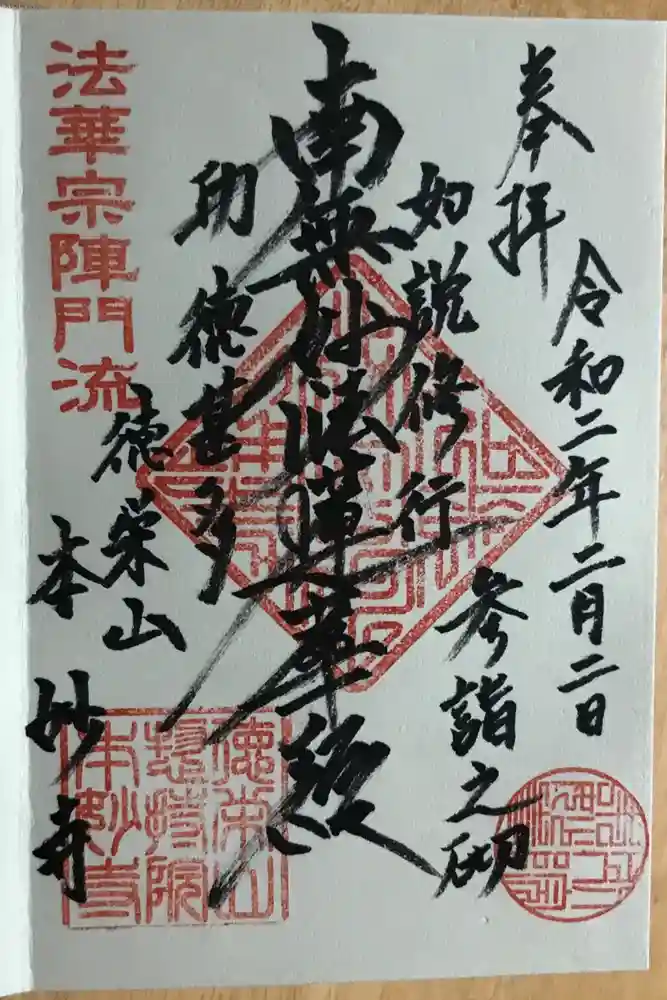 奉拝
令和二年二月二日
如説修行
参詣之砌
南無妙法蓮華経
功徳甚多
徳栄山
本妙寺
法華宗陣門流
徳栄山
惣持院
本妙寺